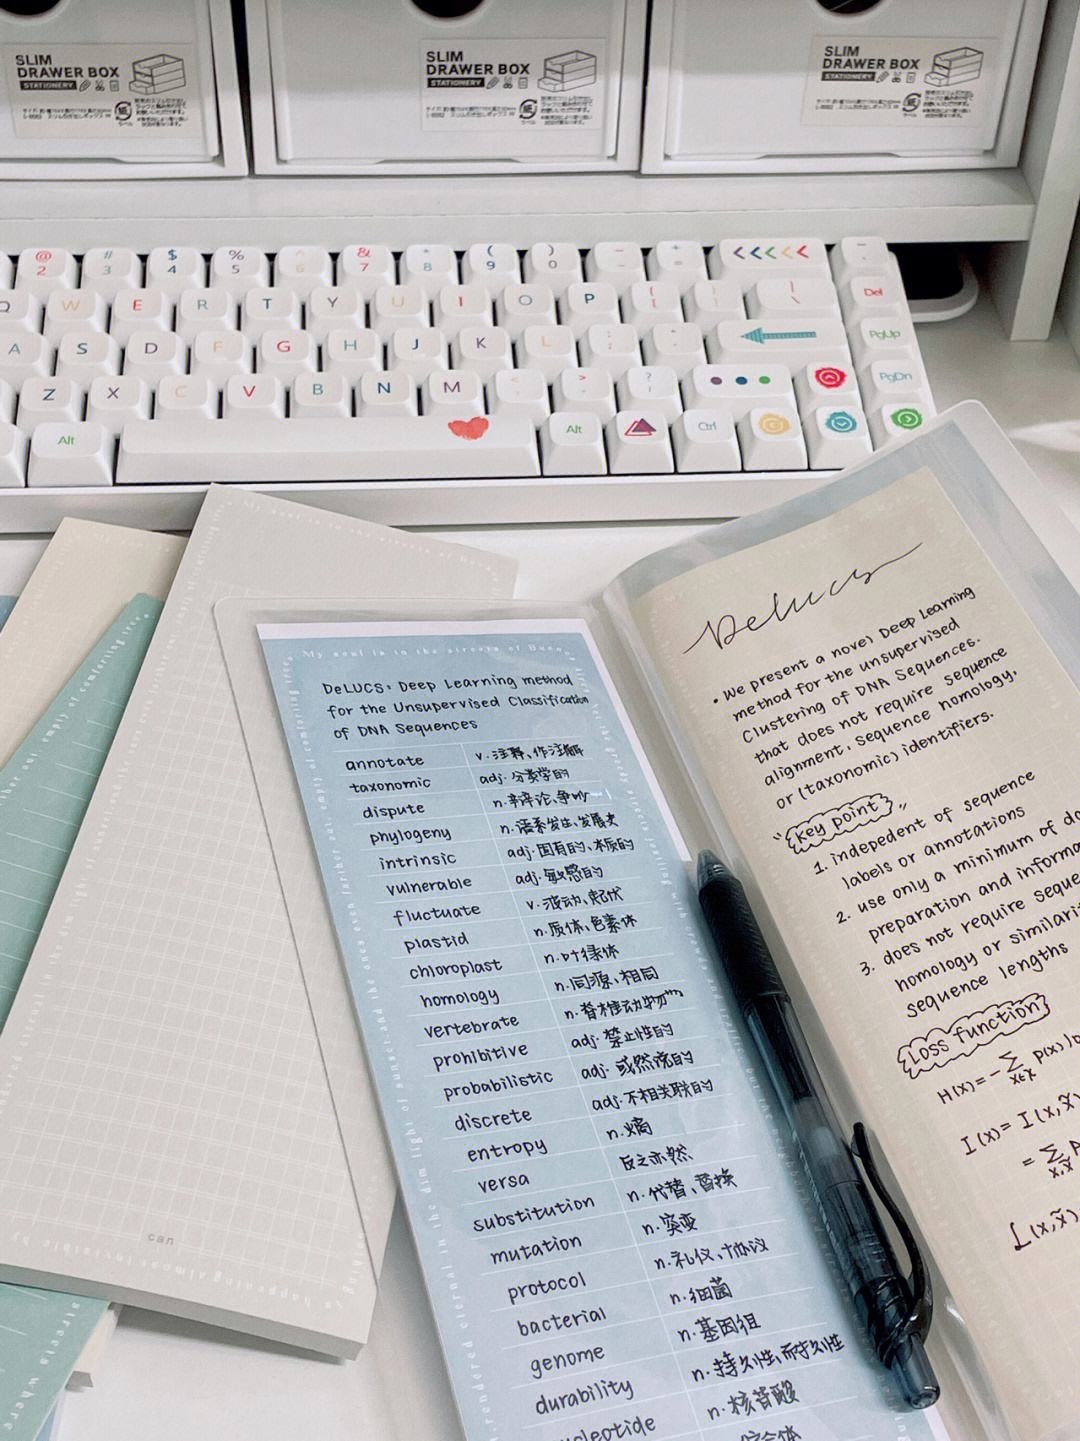 SLIM
DRAWER BOX
STATIONERY
SLIM
DRAWER BOX
STATIONERY
SLIM
DRAWER BOX
STATIONERY
@ # $ % ^ & * ( )
2 3 4 5 6 7 8 9 0
Q W E R T Y U I O P Del
A S D F G H J K L PgUp
Z X C V B N M PgDn
Alt Alt Ctrl
can
My soul is in the streets of
DeLUCS: Deep Learning method
for the Unsupervised Classification
of DNA Sequences
annotate v. 注释、作注解
taxonomic adj. 分类学的
dispute n. 辩论、争吵
phylogeny n. 语系发生、发展史
intrinsic adj. 固有的、本质的
vulnerable adj. 敏感的
fluctuate v. 波动、起伏
plastid n. 质体、色素体
chloroplast n. 叶绿体
homology n. 同源、相同
vertebrate n. 脊椎动物
prohibitive adj. 禁止性的
probabilistic adj. 或然院的
discrete adj. 不相关联的
entropy n. 熵
versa 反之亦然
substitution n. 代替、替换
mutation n. 突变
protocol n. 礼仪、协议
bacterial n. 细菌
genome n. 基因组
durability n. 持久性、耐久性
n. 核苷酸
Delucs
• We present a novel Deep Learning
method for the unsupervised
Clustering of DNA Sequences.
that does not require sequence
alignment, sequence homology,
or (taxonomic) identifiers.
"key point"
1. indepedent of sequence
labels or annotations
2. use only a minimum of
preparation and
3. does not require
homology or
sequence lengths
Loss function
H(x) = - Σ P(x)
x∈X
I(x) = I(x,x̃)
= Σ
x,x̃
L(x,x̃)